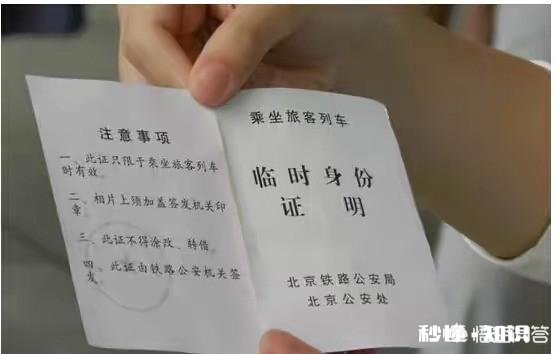 注意事项
一、此证只限于乘坐旅客列车
时有效。
二、相片上须加盖签发机关印
章。
三、此证不得涂改、转借。
四、此证由铁路公安机关签
发。
乘坐旅客列车
临时身份
证明
北京铁路公安局
北京公安处
秒懂·知识